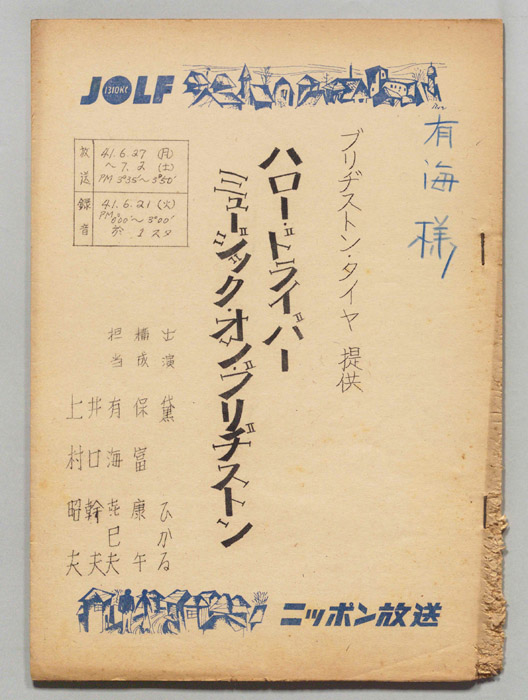 JOLF
1310KC
有海様
ブリヂストン・タイヤ 提供
ハロー・ドライバー
ミュージック・オン・ブリヂストン
放送
41.6.27 (月)
~ 7.2 (土)
PM 3°35'~ 3°50'
録音
41.6.21 (火)
PM 0°00'~ 3°00'
於 1スタ
出演 黛 ひかる
構成 保富康午
担当 有海㐂巳夫
井口幹夫
上村昭夫
ニッポン放送